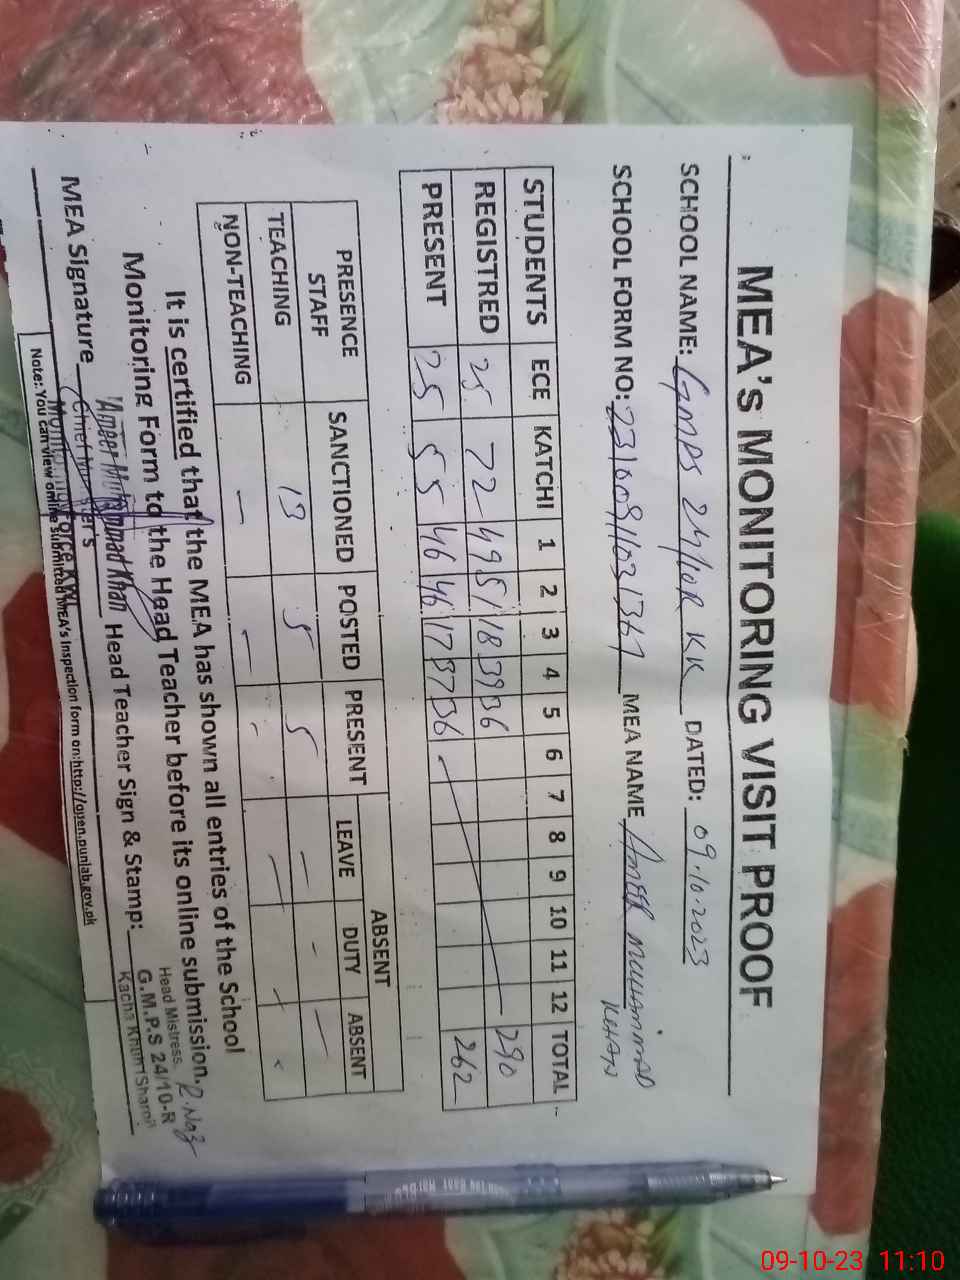 MEA's MONITORING VISIT PROOF
SCHOOL NAME: GMPS 24/10R KK DATED: 09.10.2023
SCHOOL FORM NO: MEA NAME AMEER MUHAMMAD KHAN
STUDENTS ECE KATCHI 1 2 3 4 5 6 7 8 9 10 11 12 TOTAL
REGISTRED 25 72 49 51 18 39 36 290
PRESENT 25 55 46 46 17 37 36 262
PRESENCE STAFF SANCTIONED POSTED PRESENT ABSENT
LEAVE DUTY ABSENT
TEACHING 13 5 5 — - —
NON-TEACHING — — - — - -
It is certified that the MEA has shown all entries of the School
Monitoring Form to the Head Teacher before its online submission.
MEA Signature Head Teacher Sign & Stamp:
Ameer Muhammad Khan
Chief
Monitoring Force KWL
R. Naz
Head Mistress
G.M.P.S 24/10-R
Kacha Khuh
Note: You can view online submitted MEA's inspection form on:http://open.punjab.gov.pk
09-10-23 11:10